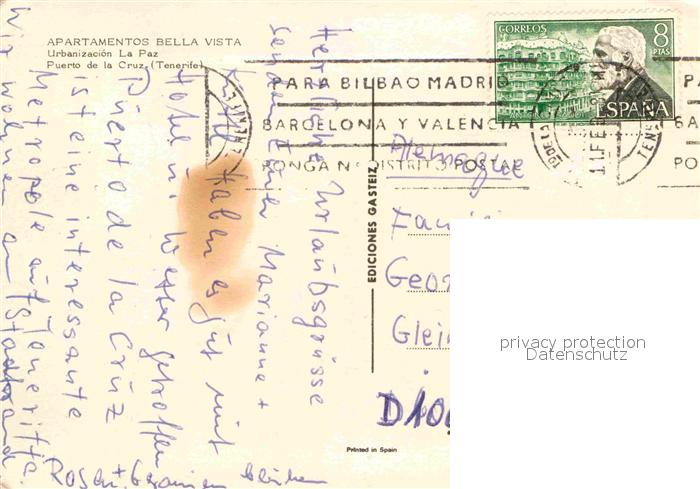 APARTAMENTOS BELLA VISTA
Urbanización La Paz
Puerto de la Cruz (Tenerife)
Herzliche Urlaubsgrüsse
senden Euch Marianne +
Kurt. Haben es gut mit
Hotel u. Wetter getroffen
Puerto de la Cruz
ist eine interessante
Metropole auf Teneriffa.
Wir wohnen am Stadtrand
Rosen + Geranien blühen
EDICIONES GASTEIZ
Printed in Spain
CORREOS
8
PTAS
ESPAÑA
PARA BILBAO MADRID
BARCELONA Y VALENCIA
PONGA Nº DISTRITO POSTAL
11 FEB
TENERIFE
Alemagne
Fami
Geor
Glei
D100
privacy protection
Datenschutz